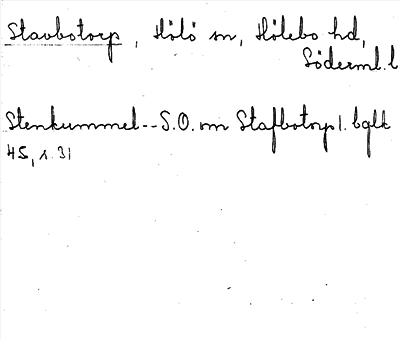 Stavbotorp, Hölö sn, Hölebo hd,
Söderml. l
Stenkummel--S.O. om Stafbotorp l. bglk
45, s. 31